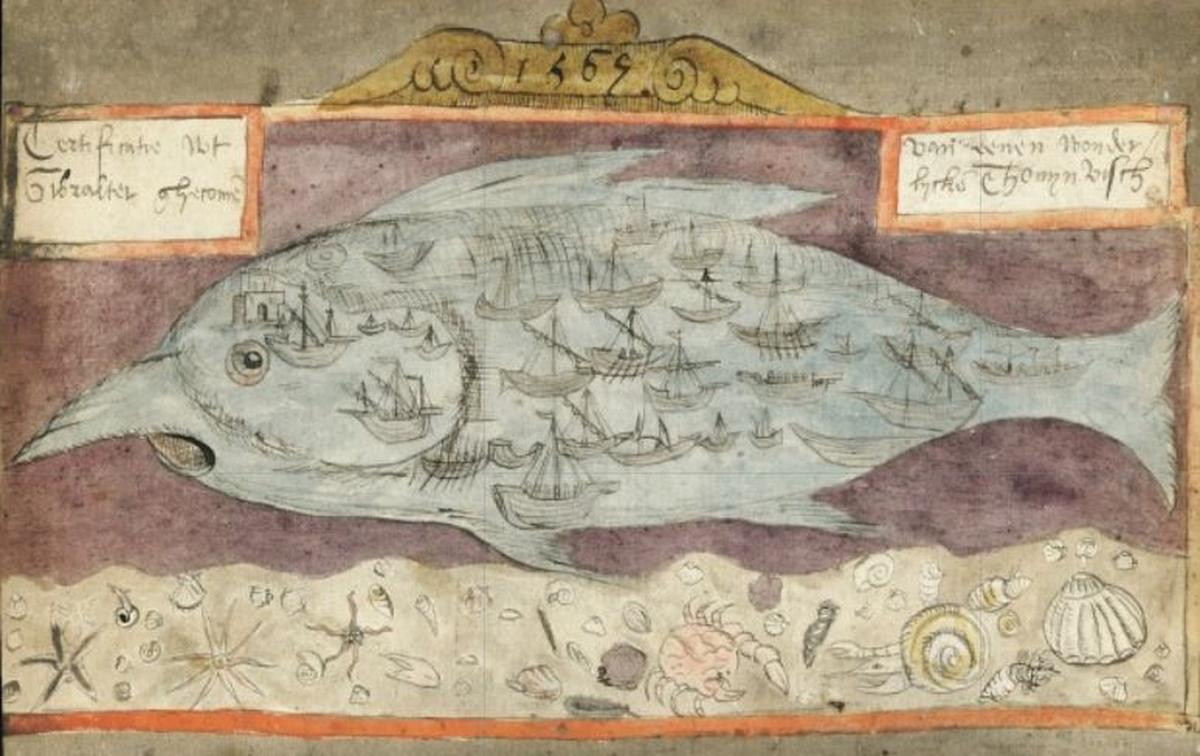 1569
Certificatie Wt
Gibralter ghecomē
van eenen wonder
lycke Thonyn Visch